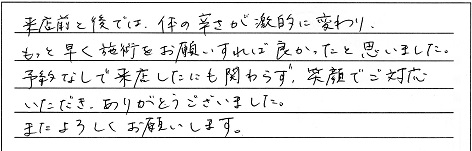 来店前と後では、体の辛さが激的に変わり、
もっと早く施術をお願いすれば良かったと思いました。
予約なしで来店したにも関わらず、笑顔でご対応
いただき、ありがとうございました。
またよろしくお願いします。